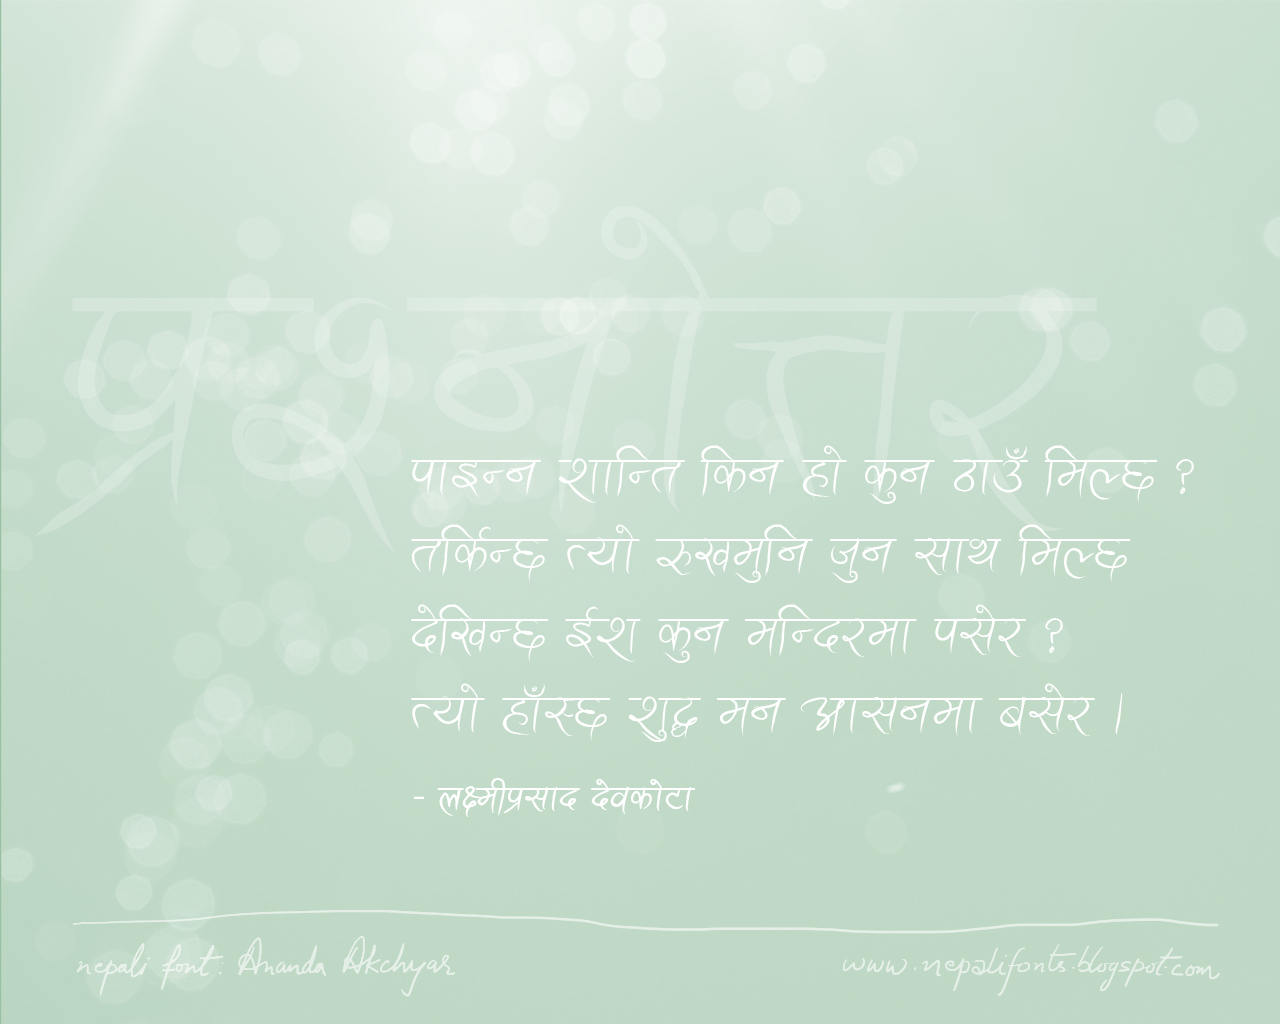 प्रश्नोत्तर
पाइन्न शान्ति किन हो कुन ठाउँ मिल्छ ?
तर्किन्छ त्यो रुखमुनि जुन साथ मिल्छ
देखिन्छ ईश कुन मन्दिरमा पसेर ?
त्यो हाँस्छ शुद्ध मन आसनमा बसेर ।
- लक्ष्मीप्रसाद देवकोटा
nepali font: Ananda Akchyar
www.nepalifonts.blogspot.com